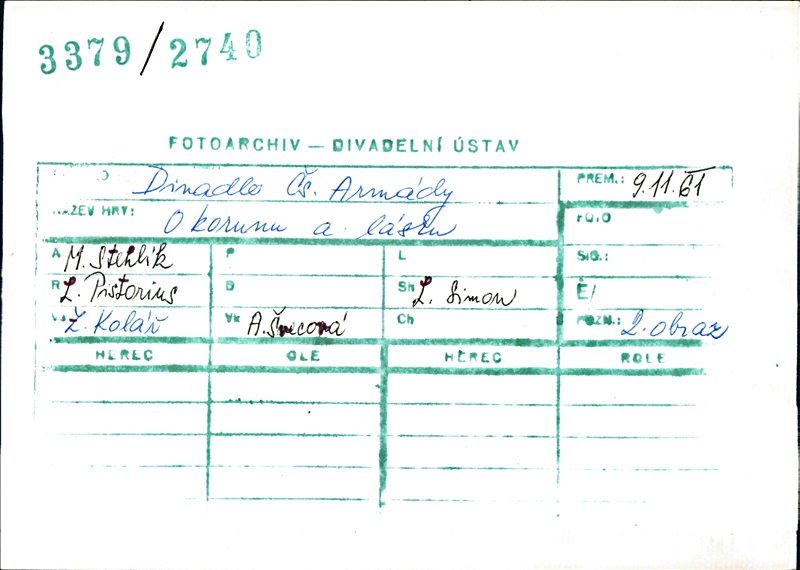 3379/2740
FOTOARCHIV — DIVADELNÍ ÚSTAV
Divadlo Čs. Armády PREM.: 9.11.61
NÁZEV HRY: O korunu a lásku FOTO
A M. Stehlík P L SIG.:
R L. Pistorius D Sh L. Simon Ě/
Z. Kolář Vk A. Švecová Ch POZN.: 2. obraz
HEREC OLE HEREC ROLE